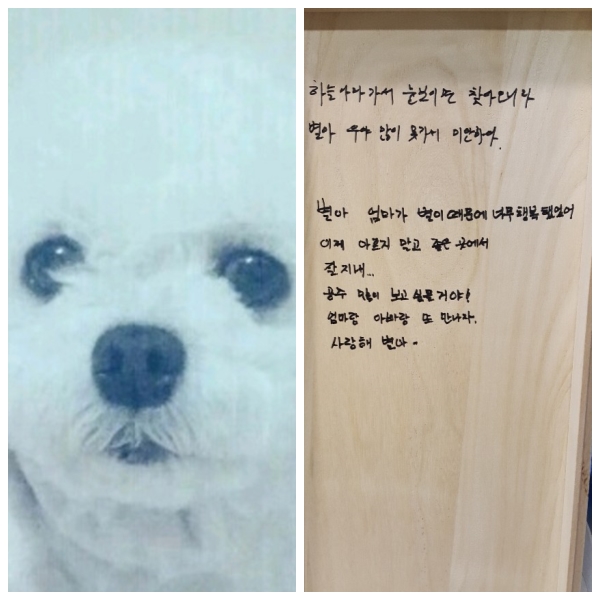 하늘나라 가서 찾아오너라
별아 많이 못가서 미안하다.
별아 엄마가 별이 때문에 너무 행복했었어
이제 아프지 말고 좋은 곳에서
잘 지내...
공주 많이 보고 싶을거야!
엄마랑 아빠랑 또 만나자.
사랑해 별아